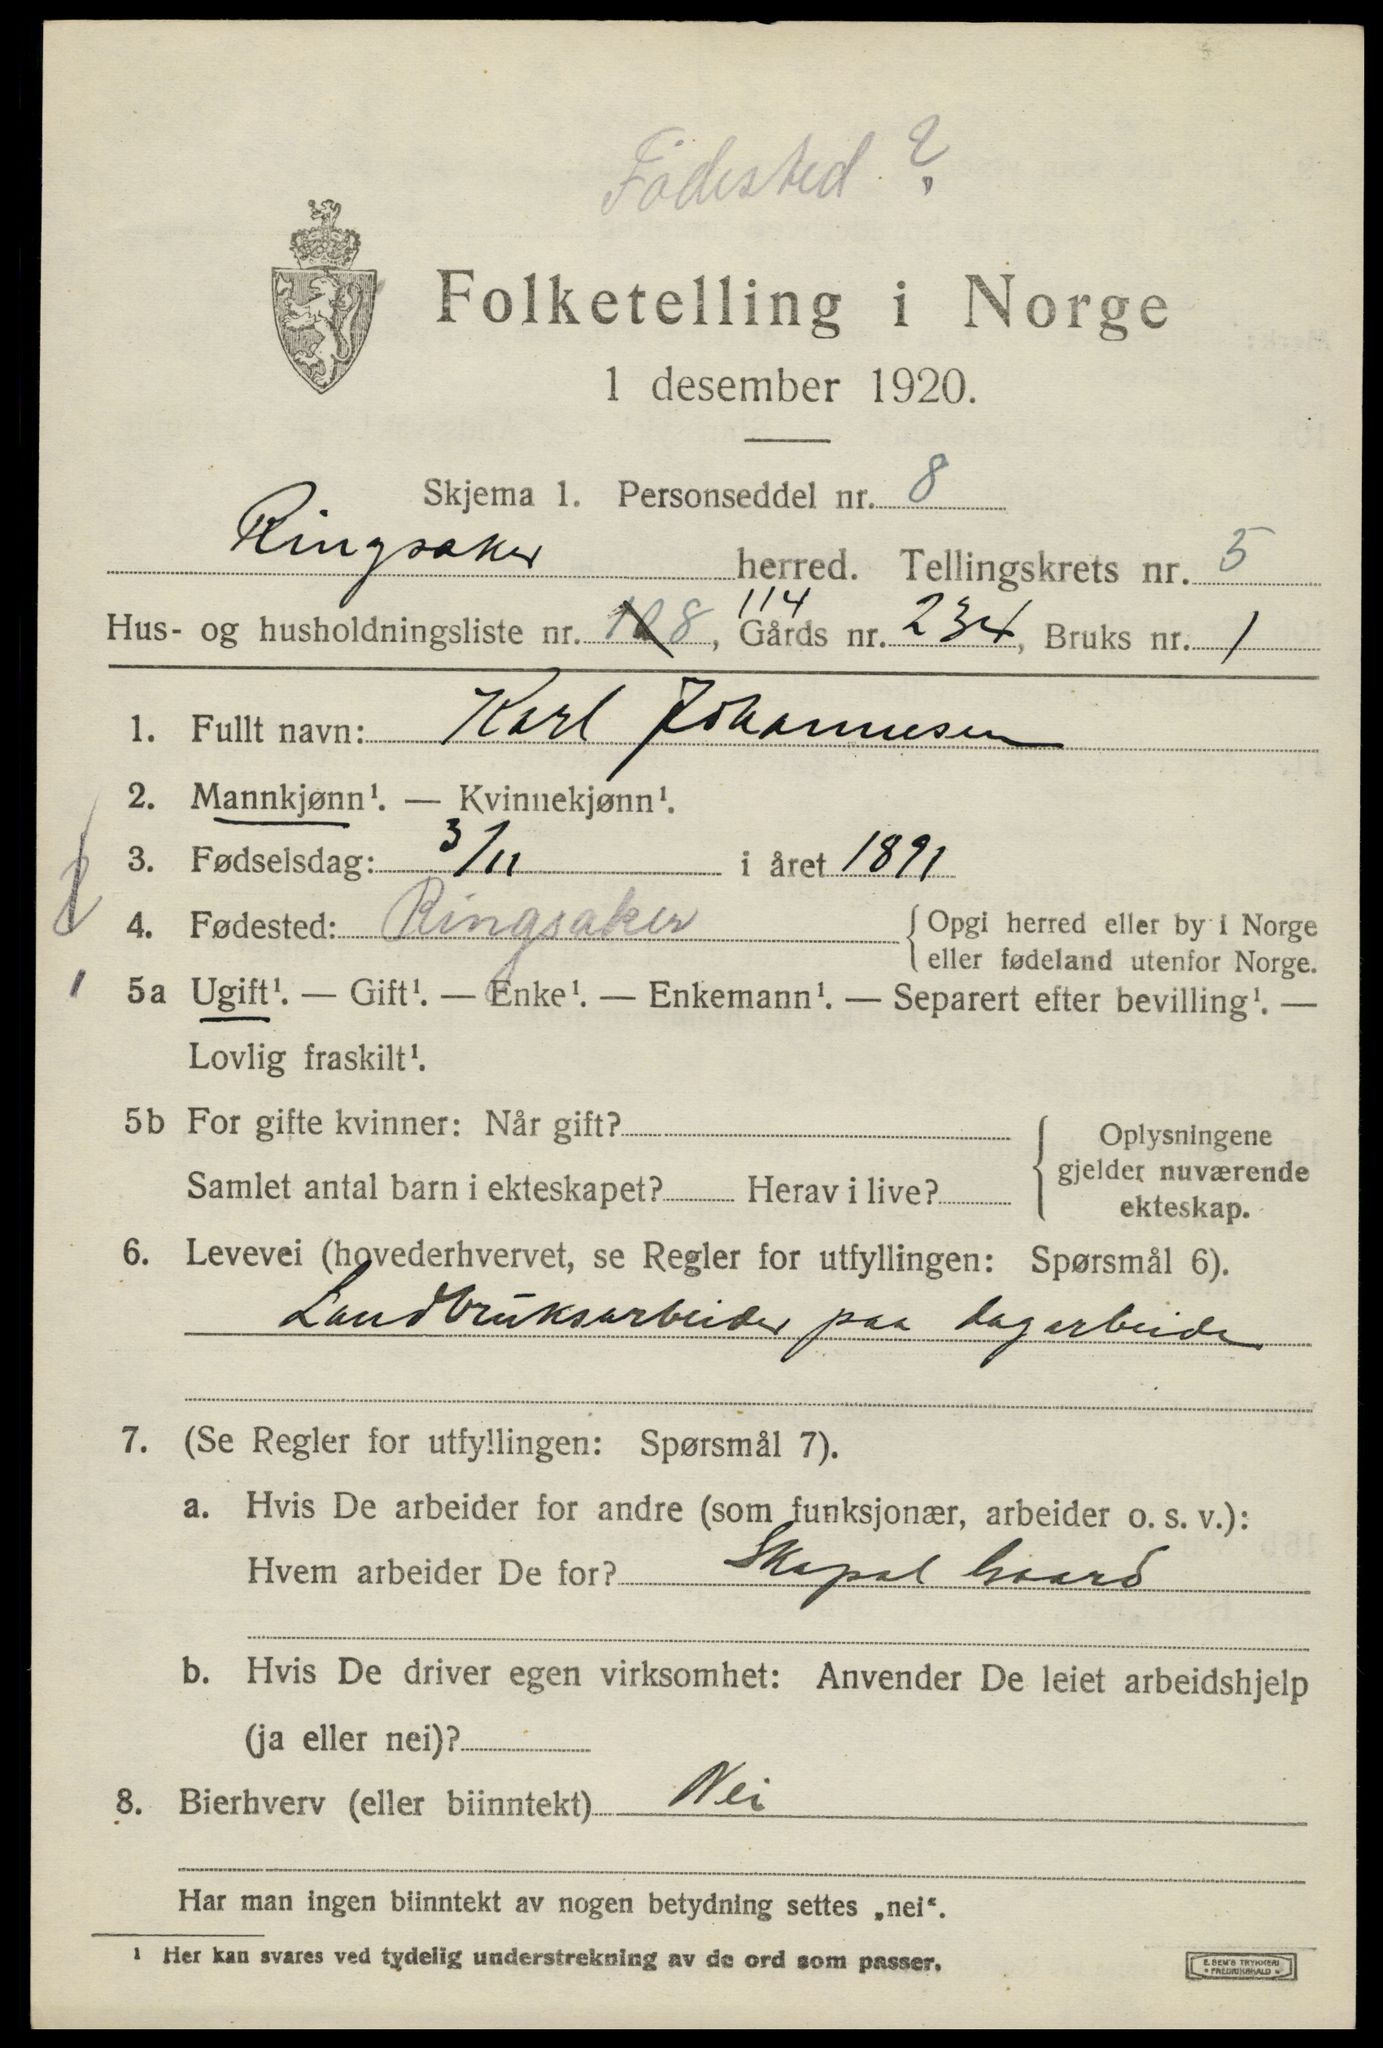 Fødested ?
Folketelling i Norge
1 desember 1920.
Skjema 1. Personseddel nr. 8
Ringsaker herred. Tellingskrets nr. 5
114
Hus- og husholdningsliste nr. 128, Gårds nr. 234, Bruks nr. 1
1. Fullt navn: Karl Johannesen
2. Mannkjønn¹. — Kvinnekjønn¹.
3. Fødselsdag: 3/11 i året 1891
4. Fødested: Ringsaker { Opgi herred eller by i Norge
eller fødeland utenfor Norge.
1 5a Ugift¹. — Gift¹. — Enke¹. — Enkemann¹. — Separert efter bevilling¹. —
Lovlig fraskilt¹.
5b For gifte kvinner: Når gift?
Samlet antal barn i ekteskapet? Herav i live?
{ Oplysningene
gjelder nuværende
ekteskap.
6. Levevei (hovederhvervet, se Regler for utfyllingen: Spørsmål 6).
Landbruksarbeider paa dagarbeide
7. (Se Regler for utfyllingen: Spørsmål 7).
a. Hvis De arbeider for andre (som funksjonær, arbeider o. s. v.):
Hvem arbeider De for? Skapal Gaard
b. Hvis De driver egen virksomhet: Anvender De leiet arbeidshjelp
(ja eller nei)?
8. Bierhverv (eller biinntekt) Nei
Har man ingen biinntekt av nogen betydning settes „nei“.
¹ Her kan svares ved tydelig understrekning av de ord som passer.
E. SEM'S TRYKKERI
* FREDRIKSHALD *